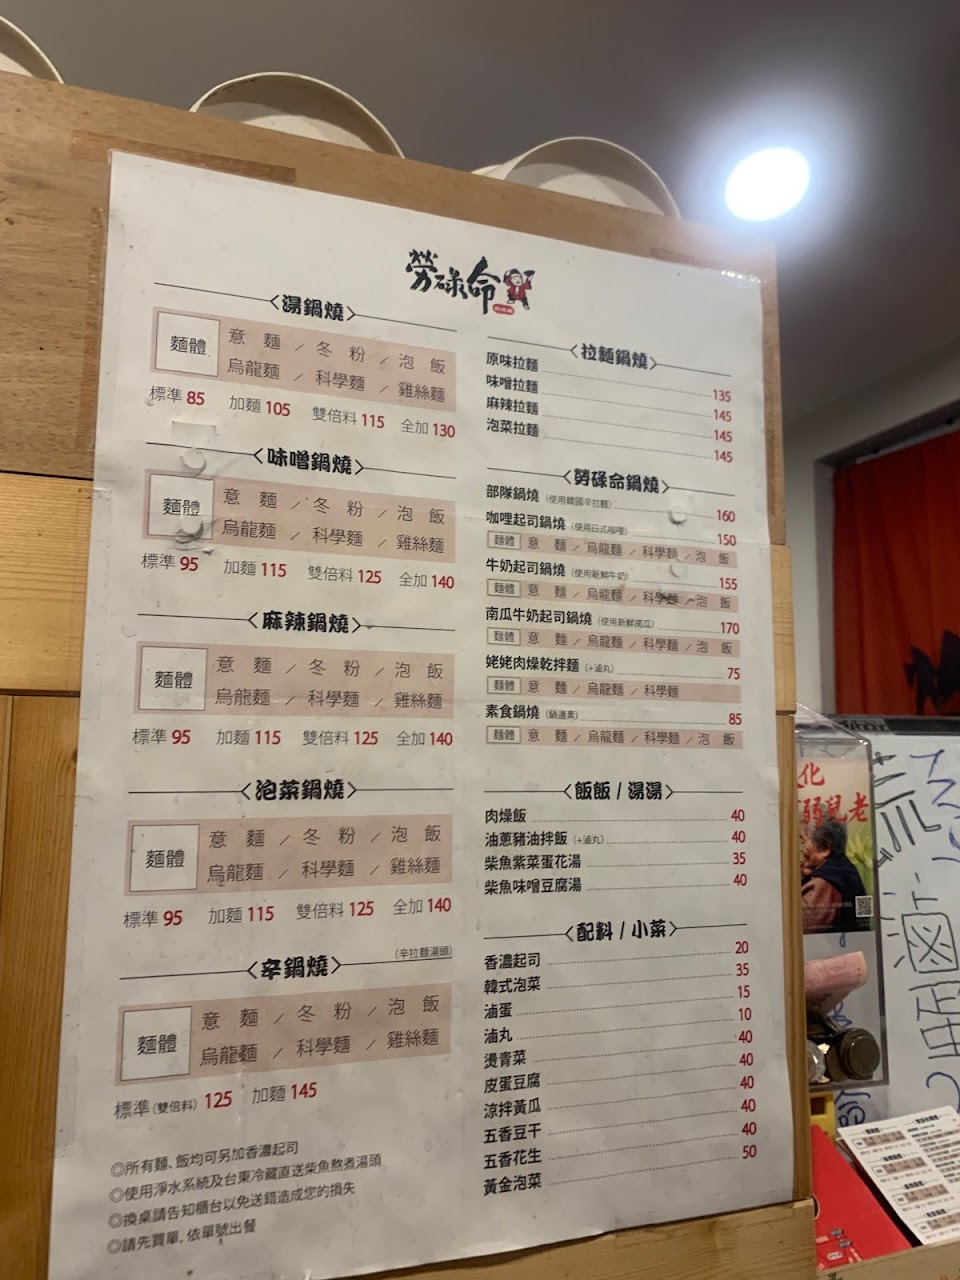 勞碌命
〈湯鍋燒〉
麵體
意麵／冬粉／泡飯
烏龍麵／科學麵／雞絲麵
標準 85 加麵 105 雙倍料 115 全加 130
〈味噌鍋燒〉
麵體
意麵／冬粉／泡飯
烏龍麵／科學麵／雞絲麵
標準 95 加麵 115 雙倍料 125 全加 140
〈麻辣鍋燒〉
麵體
意麵／冬粉／泡飯
烏龍麵／科學麵／雞絲麵
標準 95 加麵 115 雙倍料 125 全加 140
〈泡菜鍋燒〉
麵體
意麵／冬粉／泡飯
烏龍麵／科學麵／雞絲麵
標準 95 加麵 115 雙倍料 125 全加 140
〈辛鍋燒〉 (辛拉麵湯頭)
麵體
意麵／冬粉／泡飯
烏龍麵／科學麵／雞絲麵
標準(雙倍料) 125 加麵 145
◎所有麵、飯均可另加香濃起司
◎使用淨水系統及台東冷藏直送柴魚熬煮湯頭
◎換桌請告知櫃台以免送錯造成您的損失
◎請先買單, 依單號出餐
〈拉麵鍋燒〉
原味拉麵 135
味噌拉麵 145
麻辣拉麵 145
泡菜拉麵 145
〈勞碌命鍋燒〉
部隊鍋燒 (使用韓國辛拉麵) 160
咖哩起司鍋燒 (使用日式咖哩) 150
麵體 意麵／烏龍麵／科學麵／泡飯
牛奶起司鍋燒 (使用新鮮牛奶) 155
麵體 意麵／烏龍麵／科學麵／泡飯
南瓜牛奶起司鍋燒 (使用新鮮南瓜) 170
麵體 意麵／烏龍麵／科學麵／泡飯
姥姥肉燥乾拌麵 (+滷丸) 75
麵體 意麵／烏龍麵／科學麵
素食鍋燒 (鍋邊素) 85
麵體 意麵／烏龍麵／科學麵／泡飯
〈飯飯 / 湯湯〉
肉燥飯 40
油蔥豬油拌飯 (+滷丸) 40
柴魚紫菜蛋花湯 35
柴魚味噌豆腐湯 40
〈配料 / 小菜〉
香濃起司 20
韓式泡菜 35
滷蛋 15
滷丸 10
燙青菜 40
皮蛋豆腐 40
涼拌黃瓜 40
五香豆干 40
五香花生 40
黃金泡菜 50
化
弱兒老
流
滷蛋